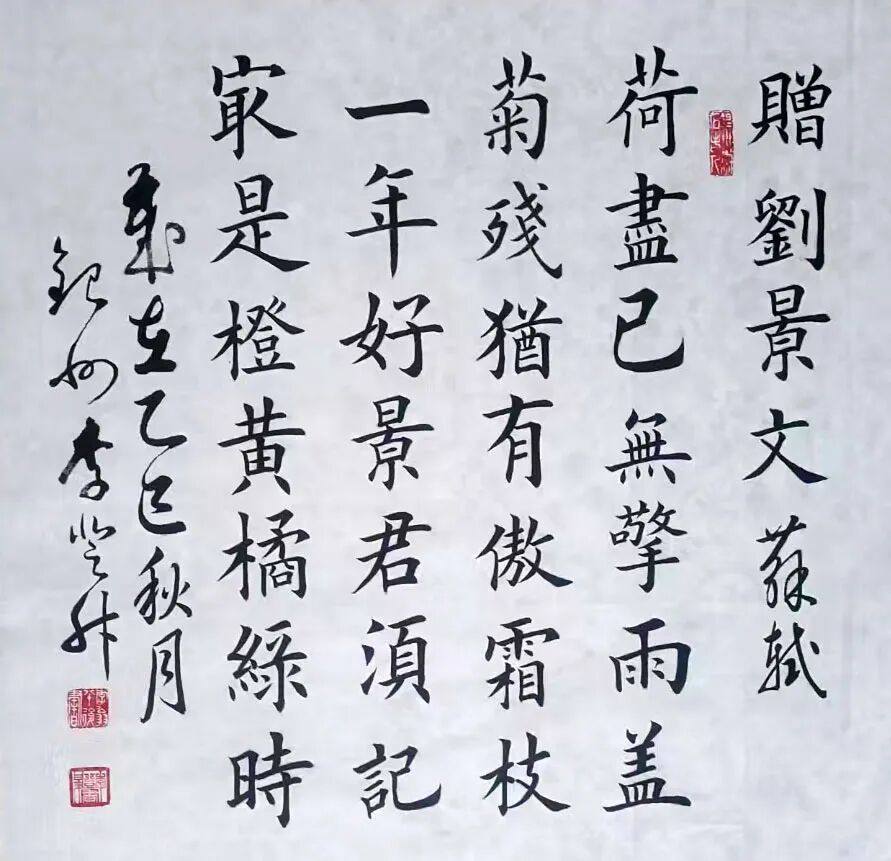 贈劉景文 蘇軾
荷盡已無擎雨盖
菊殘猶有傲霜枝
一年好景君須記
㝡是橙黃橘綠時
歲在乙巳秋月
州李